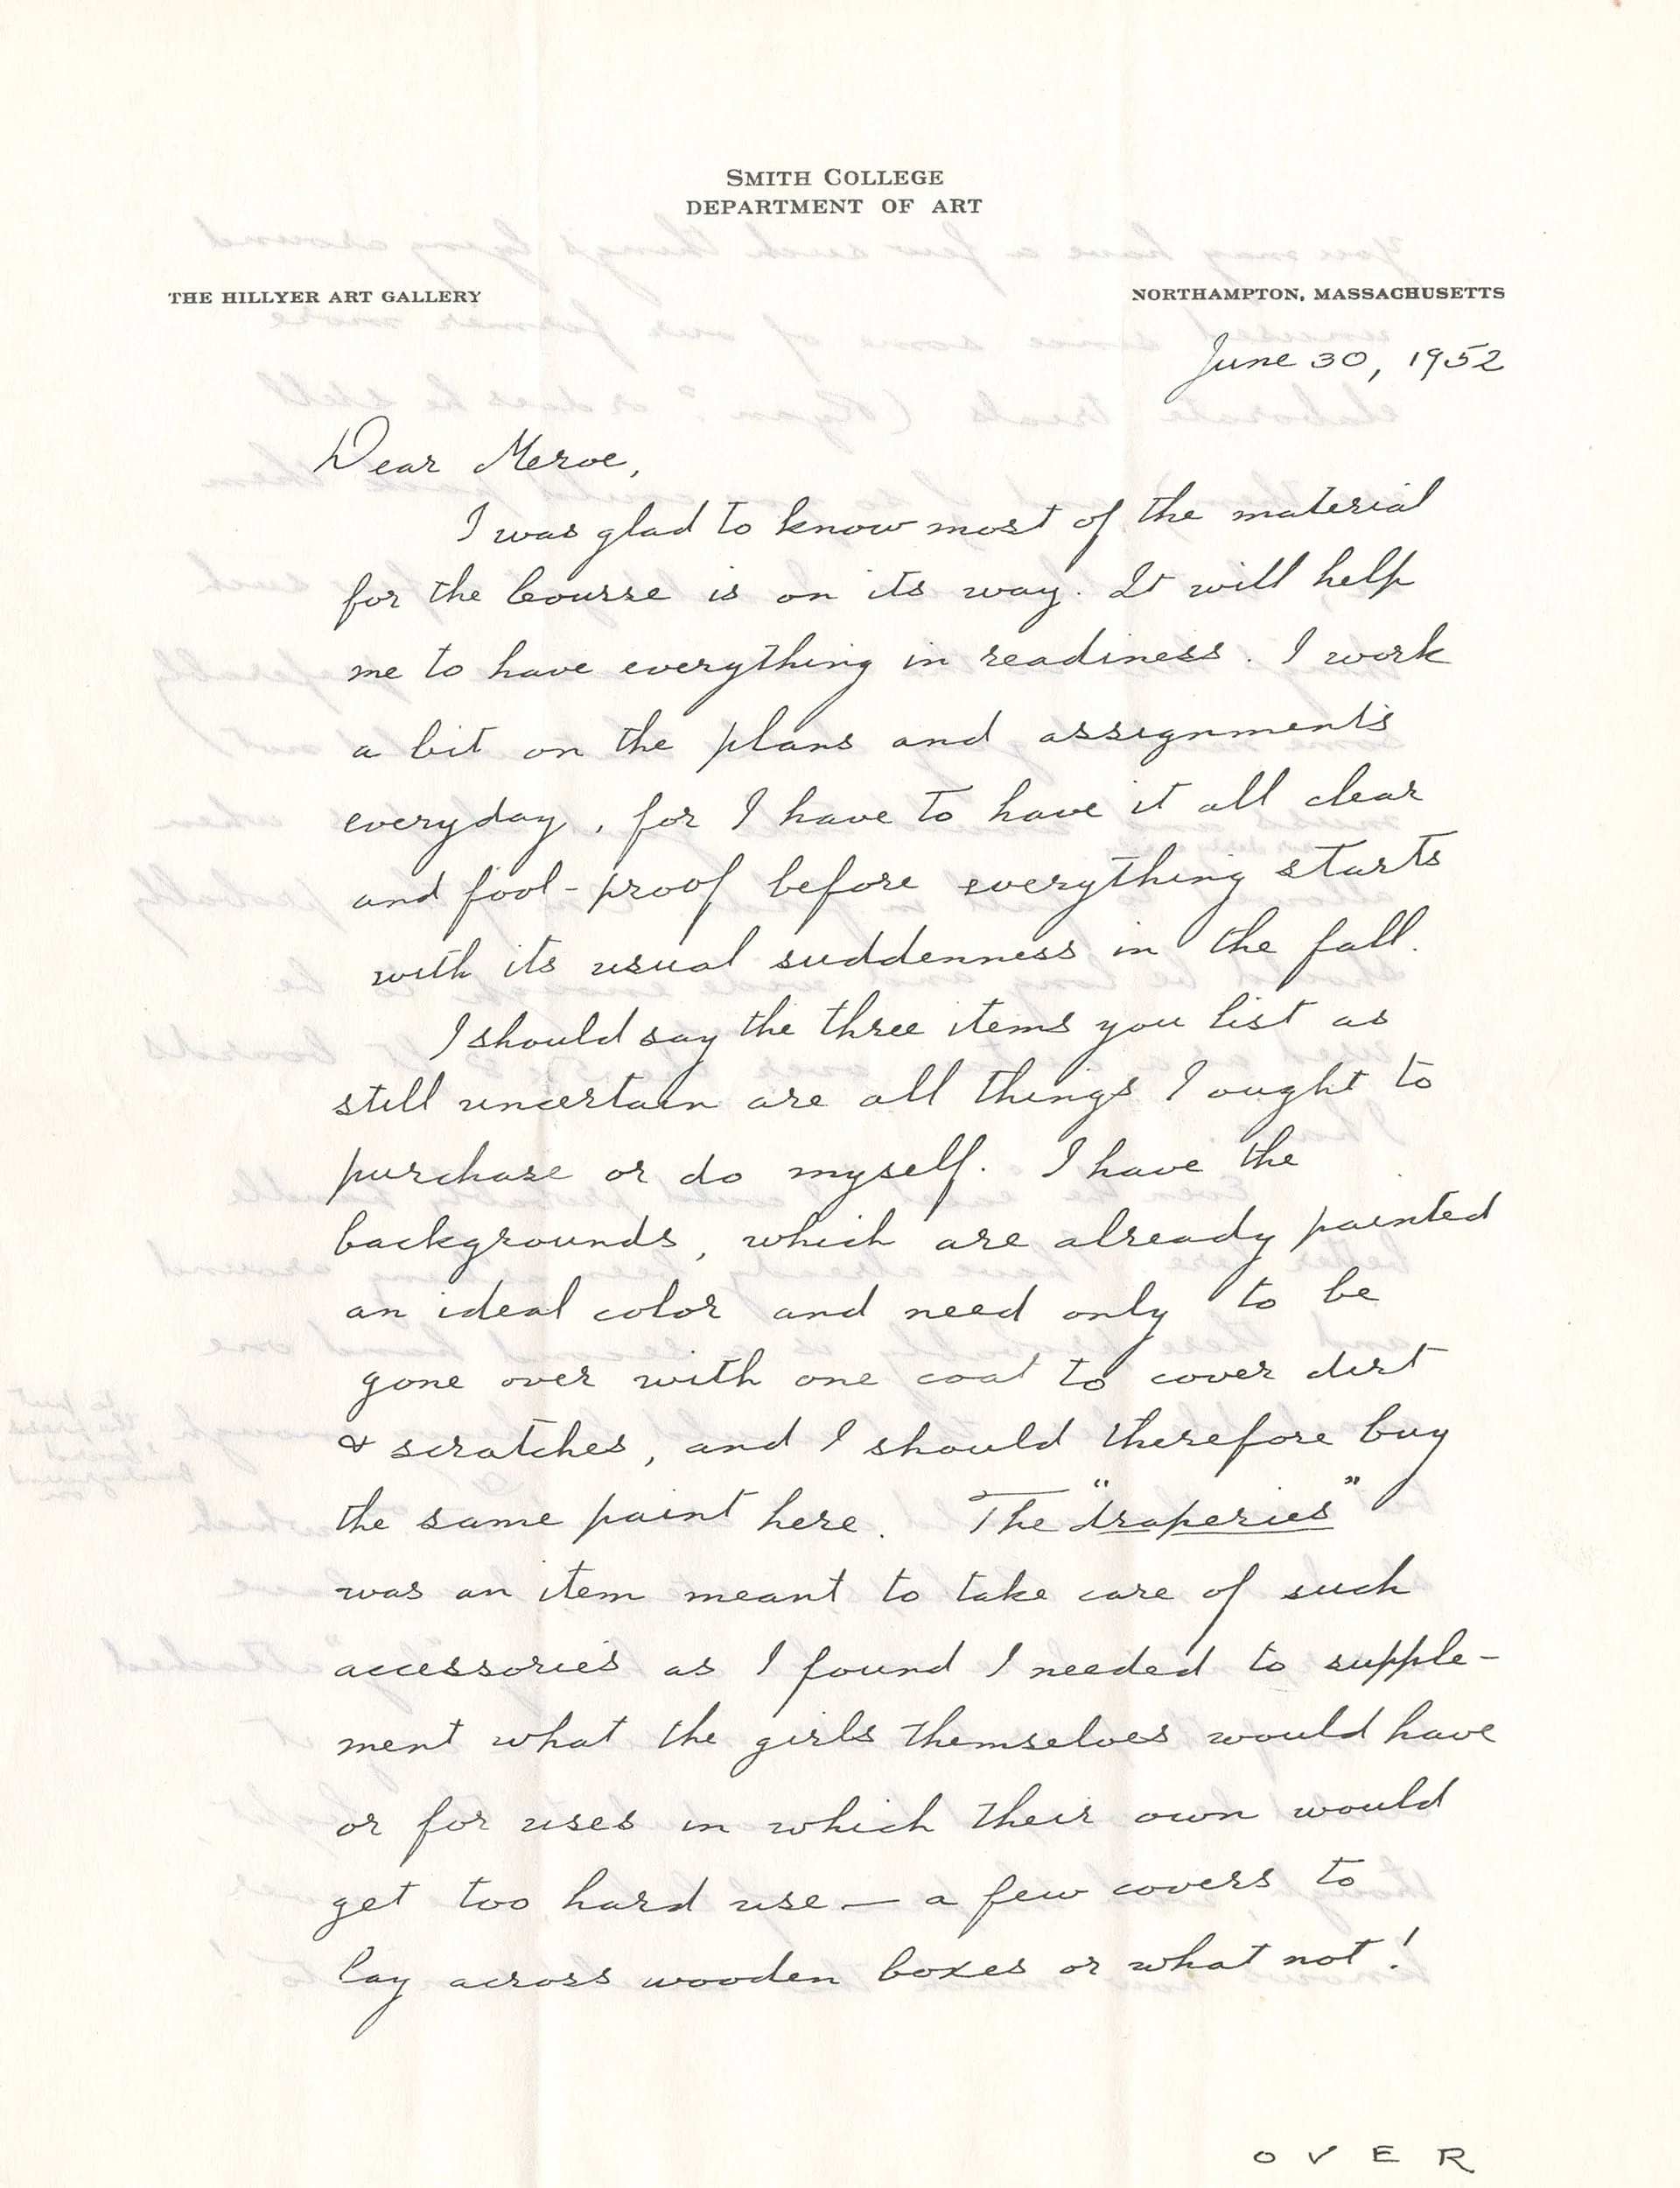 SMITH COLLEGE
DEPARTMENT OF ART
THE HILLYER ART GALLERY
NORTHAMPTON, MASSACHUSETTS
June 30, 1952
Dear Merve,
I was glad to know most of the material
for the Course is on its way. It will help
me to have everything in readiness. I work
a bit on the plans and assignments
everyday, for I have to have it all clear
and fool-proof before everything starts
with its usual suddenness in the fall.
I should say the three items you list as
still uncertain are all things I ought to
purchase or do myself. I have the
backgrounds, which are already painted
an ideal color and need only to be
gone over with one coat to cover dirt
& scratches, and I should therefore buy
the same paint here. The "draperies"
was an item meant to take care of such
accessories as I found I needed to supple-
ment what the girls themselves would have
or for uses in which their own would
get too hard use — a few covers to
lay across wooden boxes or what not!
OVER